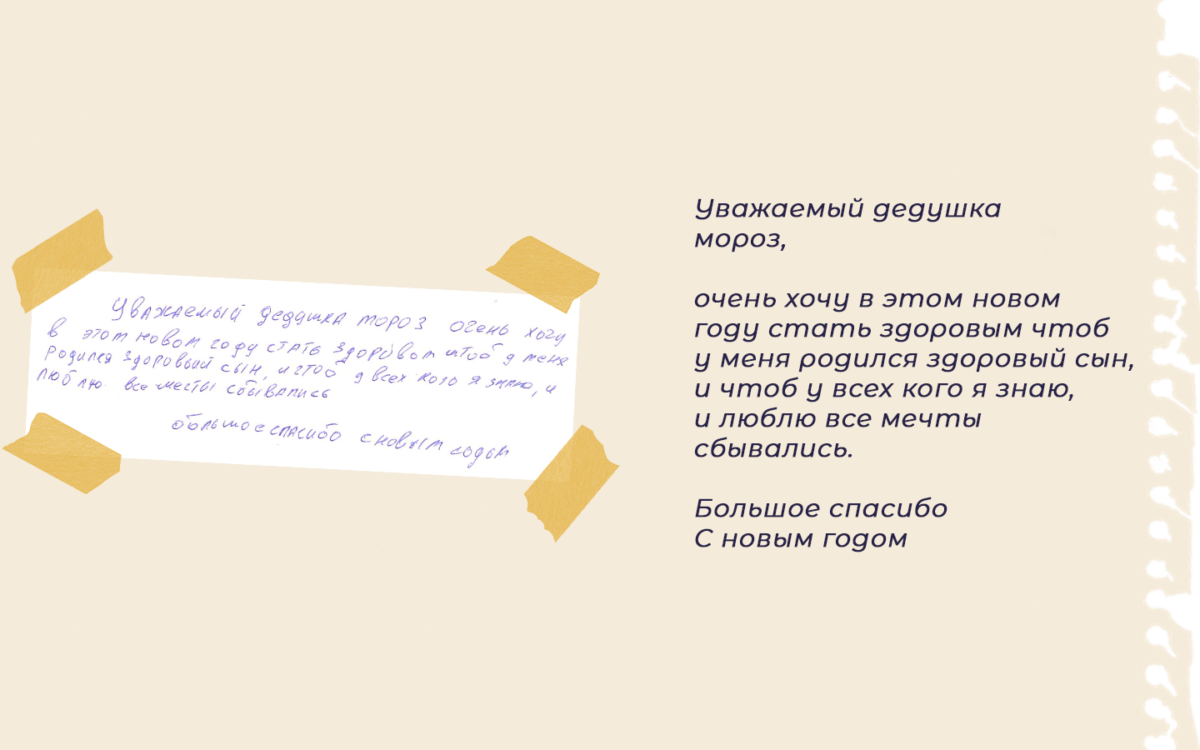 Уважаемый дедушка мороз очень хочу
в этом новом году стать здоровом чтоб у меня
родился здоровый сын, и чтоб у всех кого я знаю, и
люблю все мечты сбывались
большое спасибо с новым годом
Уважаемый дедушка
мороз,
очень хочу в этом новом
году стать здоровым чтоб
у меня родился здоровый сын,
и чтоб у всех кого я знаю,
и люблю все мечты
сбывались.
Большое спасибо
С новым годом